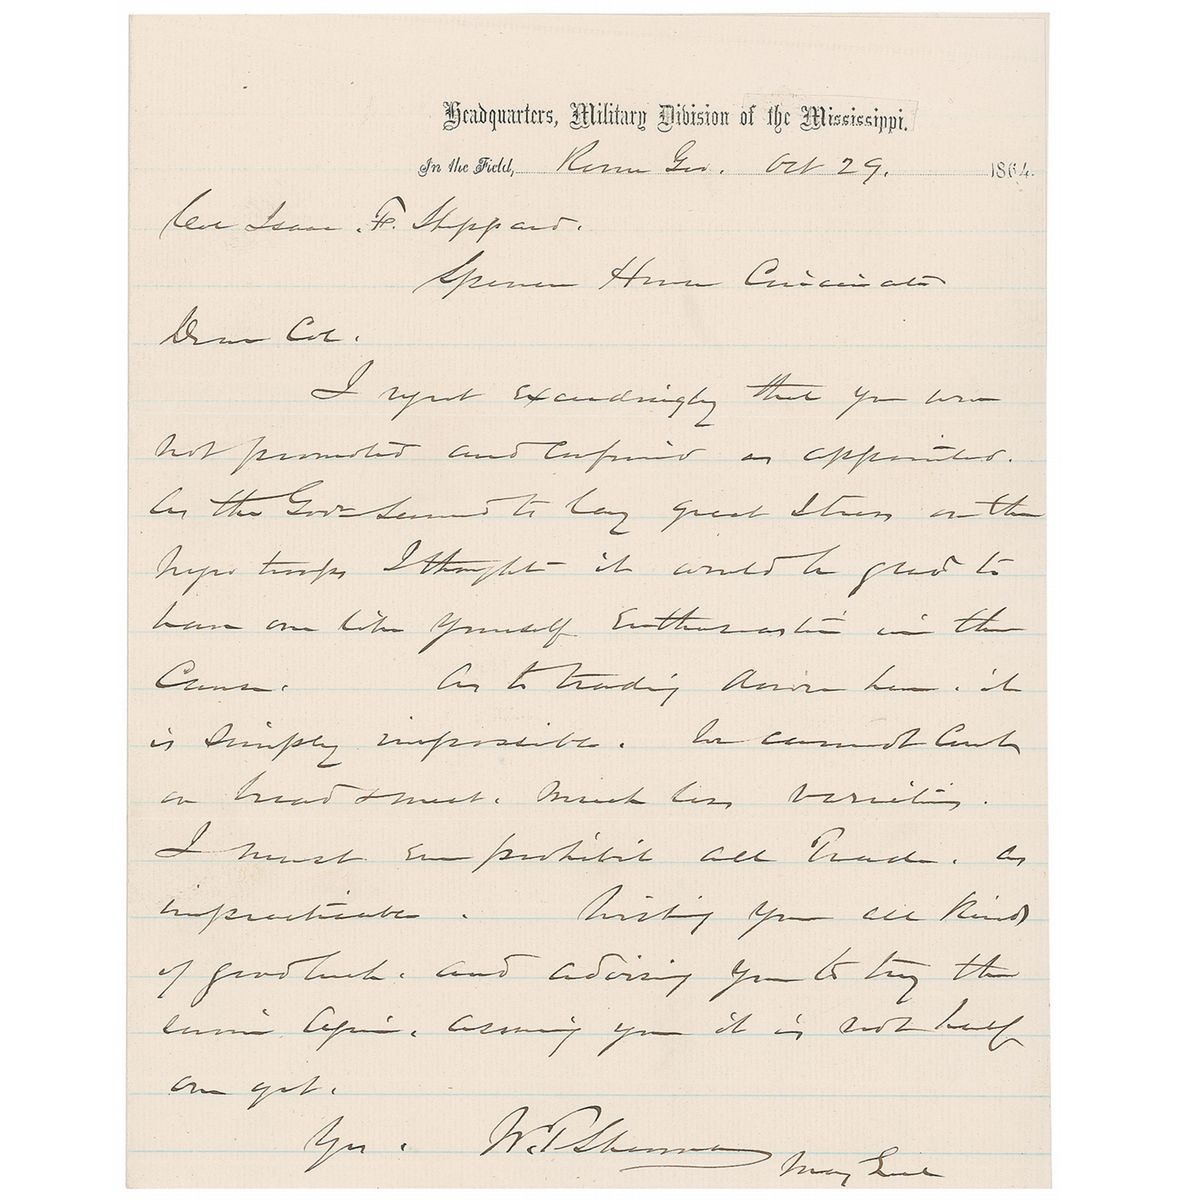 Headquarters, Military Division of the Mississippi.
In the Field, Rome Geo. Oct 29. 1864.
Col Isaac F. Sheppard.
Spencer House Cincinnati
Dear Col.
I regret exceedingly that you were
not promoted and confirmed as appointed.
As the Govt seemed to lay great stress on the
negro troops I thought it would be glad to
have one like yourself Enthusiastic in the
Cause. As to trading down here. it
is simply impossible. We cannot
on bread & meat. much less varieties.
I must prohibit all Trade. as
impracticable. Wishing you all kinds
of good luck. and advising you to try the
again. assuring you it is not half
over yet.
Yrs. W. T. Sherman
Maj Genl